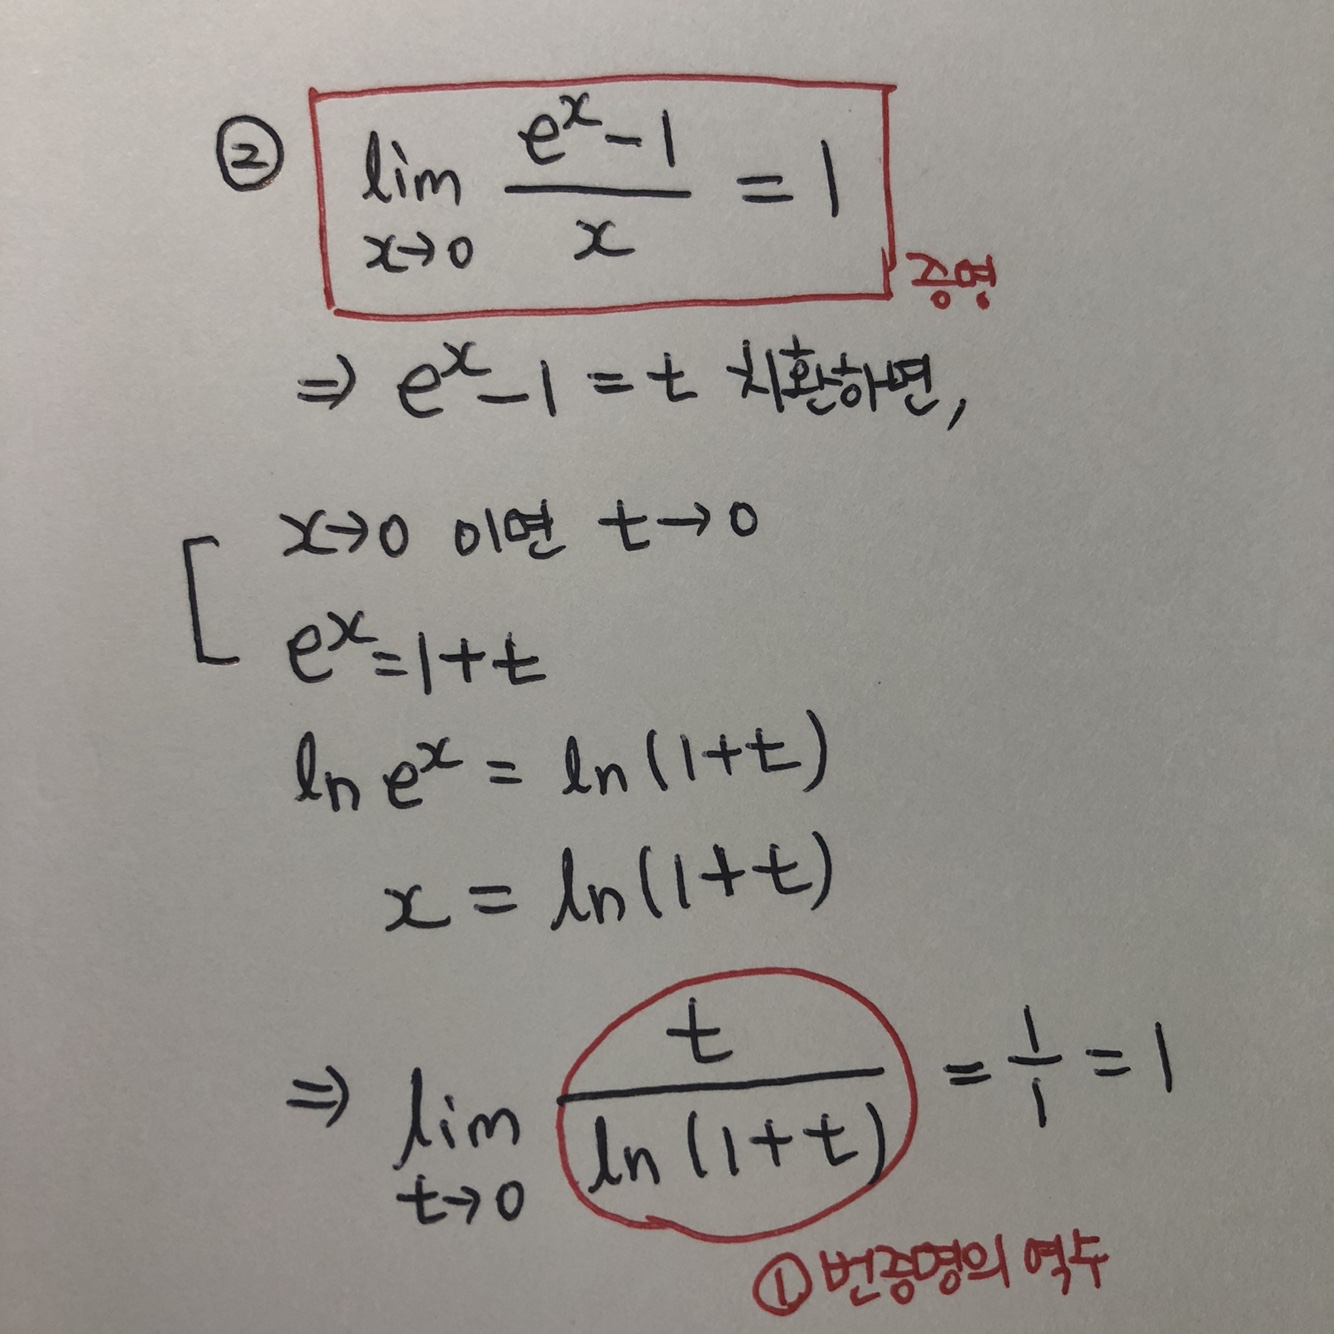 ② lim x→0 (e^x-1)/x = 1
증명
⇒ e^x-1 = t 치환하면,
x→0 이면 t→0
e^x=1+t
ln e^x = ln(1+t)
x = ln(1+t)
⇒ lim t→0 t/ln(1+t) = 1/1 = 1
① 번증명의 역수